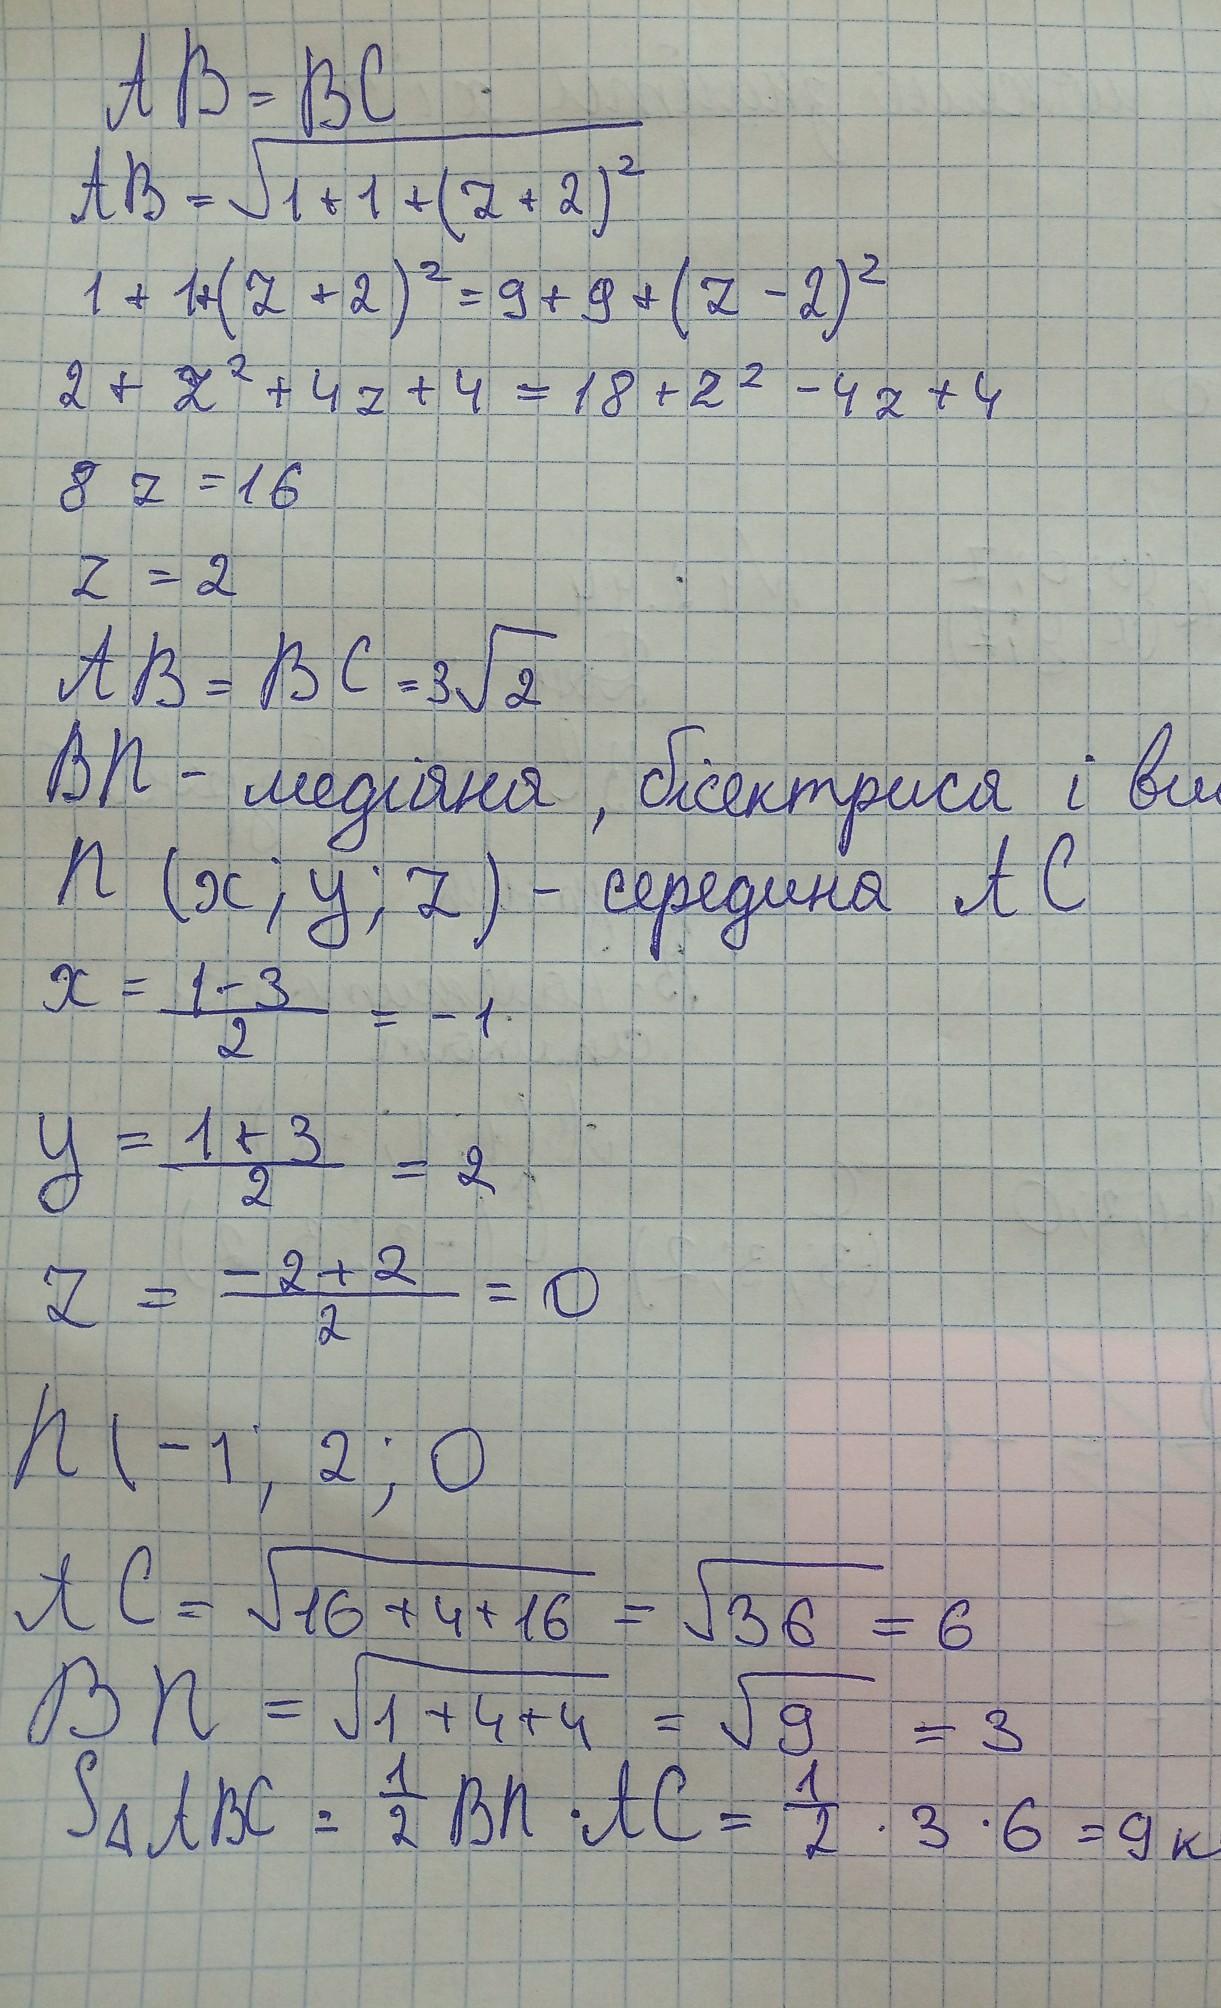 AB = BC
AB = √1+1+(z+2)²
1+1+(z+2)² = 9+9+(z-2)²
2+z²+4z+4 = 18+z²-4z+4
8z = 16
z = 2
AB = BC = 3√2
BN - медіяна, бісектриса і ви
N (x; y; z) - середина AC
x = (1-3)/2 = -1
y = (1+3)/2 = 2
z = (-2+2)/2 = 0
N (-1; 2; 0
AC = √16+4+16 = √36 = 6
BN = √1+4+4 = √9 = 3
S△ABC = 1/2 BN · AC = 1/2 · 3 · 6 = 9к